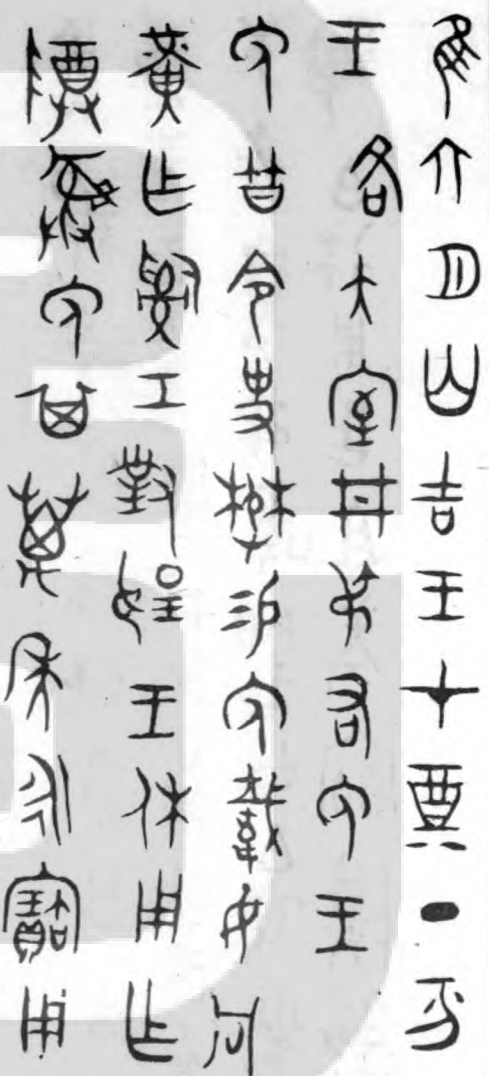 隹六月初吉王才奠丁亥
王各大室井叔右免王
免曆令史懋易免載市冋
黃乍嗣工對揚王休用乍
尊彝免其萬年永寶用